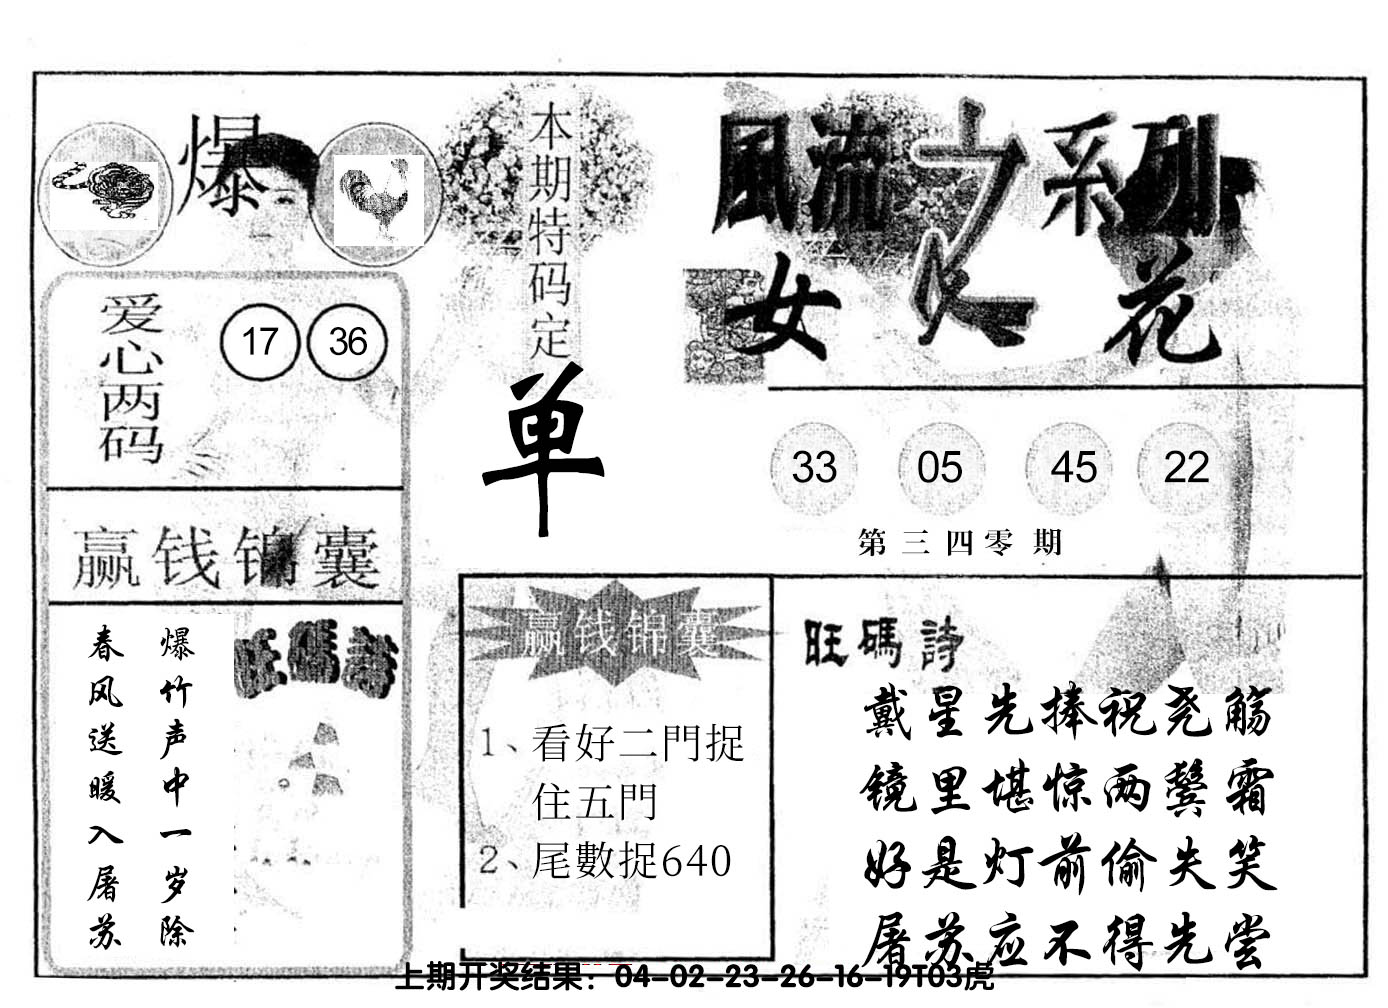 爆
爱心两码
17 36
赢钱锦囊
爆竹声中一岁除
春风送暖入屠苏
旺碼詩
本期特码定
单
風流之系列
女人花
33 05 45 22
第三四零期
赢钱锦囊
1、看好二門捉
住五門
2、尾數捉640
旺碼詩
戴星先捧祝尧觞
镜里堪惊两鬓霜
好是灯前偷失笑
屠苏应不得先尝
上期开奖结果：04-02-23-26-16-19T03虎